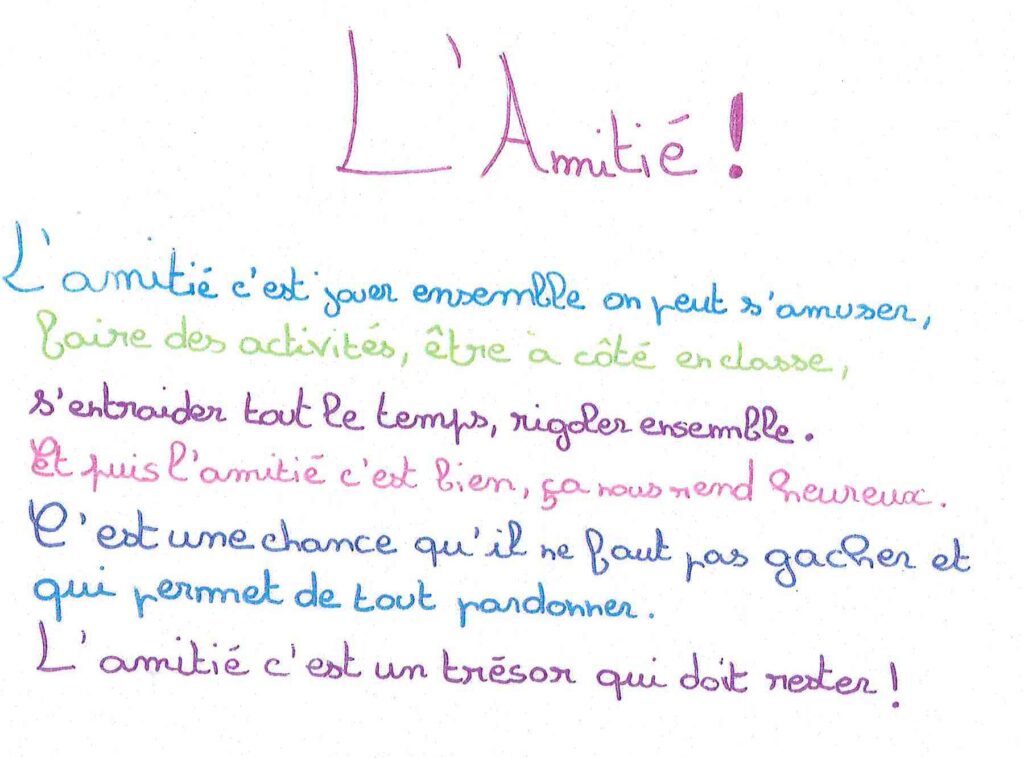 L'Amitié !
L'amitié c'est jouer ensemble on peut s'amuser,
faire des activités, être à côté en classe,
s'entraider tout le temps, rigoler ensemble.
Et puis l'amitié c'est bien, ça nous rend heureux.
C'est une chance qu'il ne faut pas gacher et
qui permet de tout pardonner.
L'amitié c'est un trésor qui doit rester !